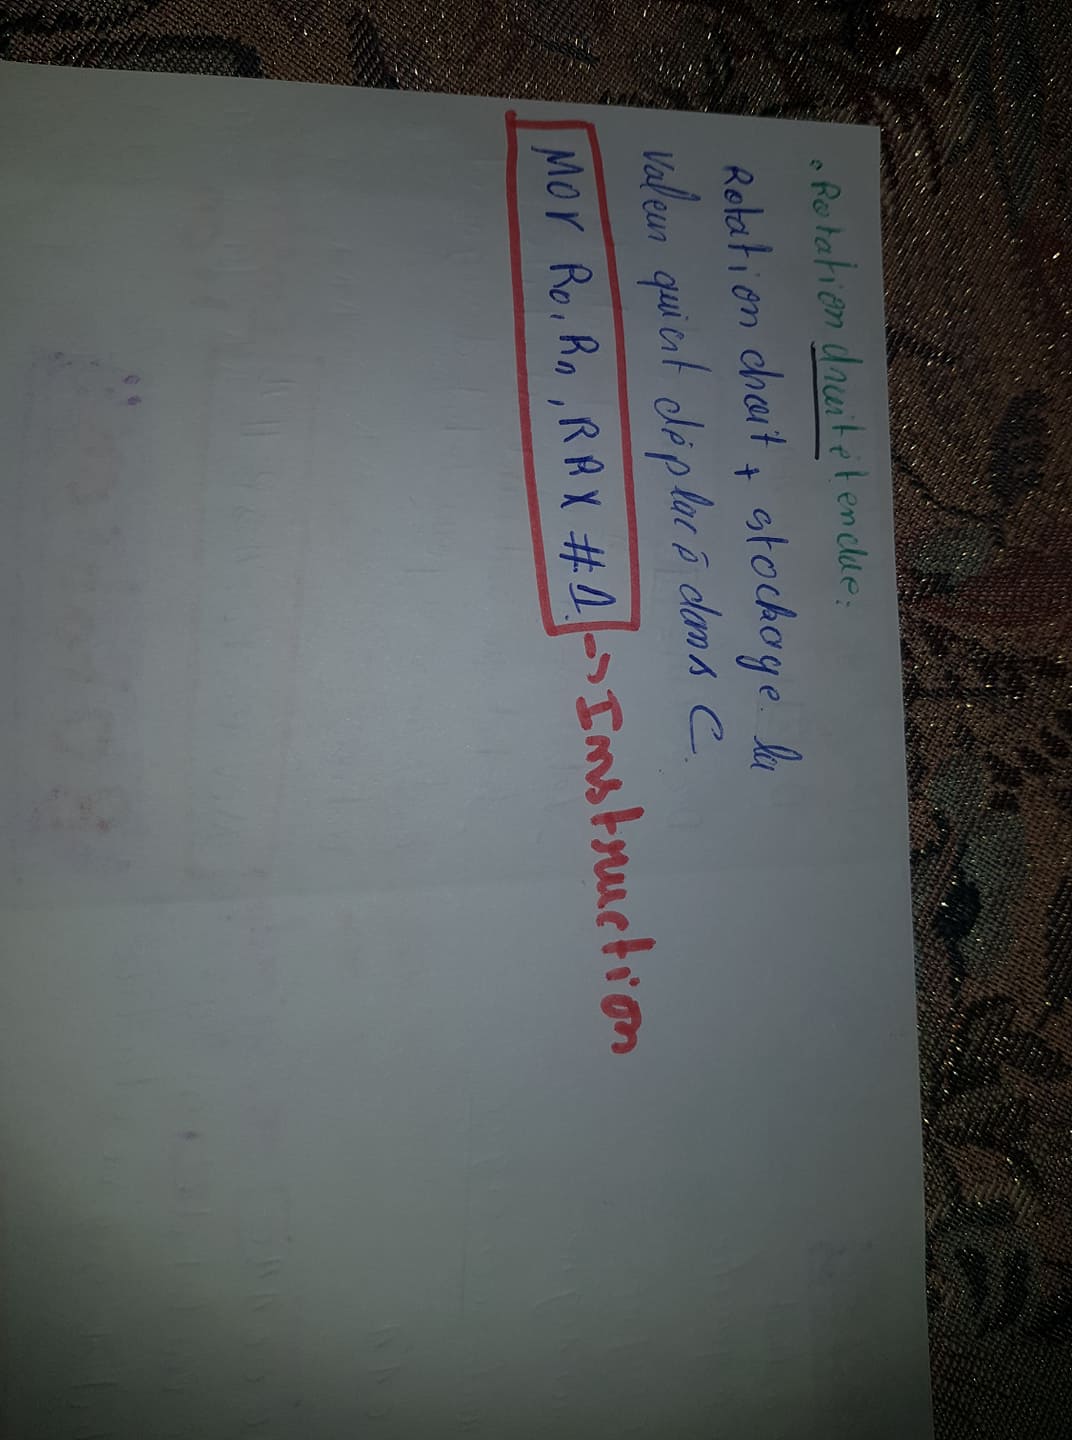 • Rotation druit étendue:
Rotation droit + stockage la
valeur qui est déplacé dans C.
MOV R0, R1, RRX #1. -> Instruction